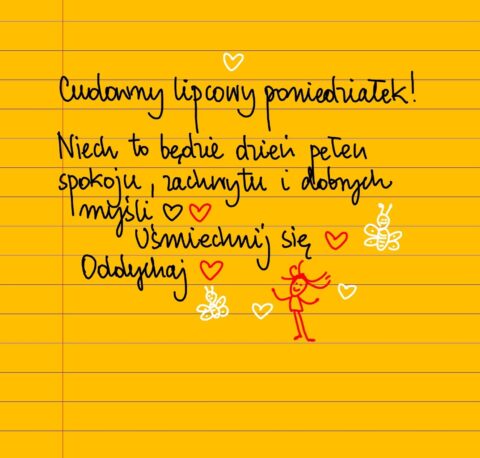 Cudowny lipcowy poniedziałek!
Niech to będzie dzień pełen
spokoju, zachwytu i dobrych
myśli
Uśmiechnij się
Oddychaj